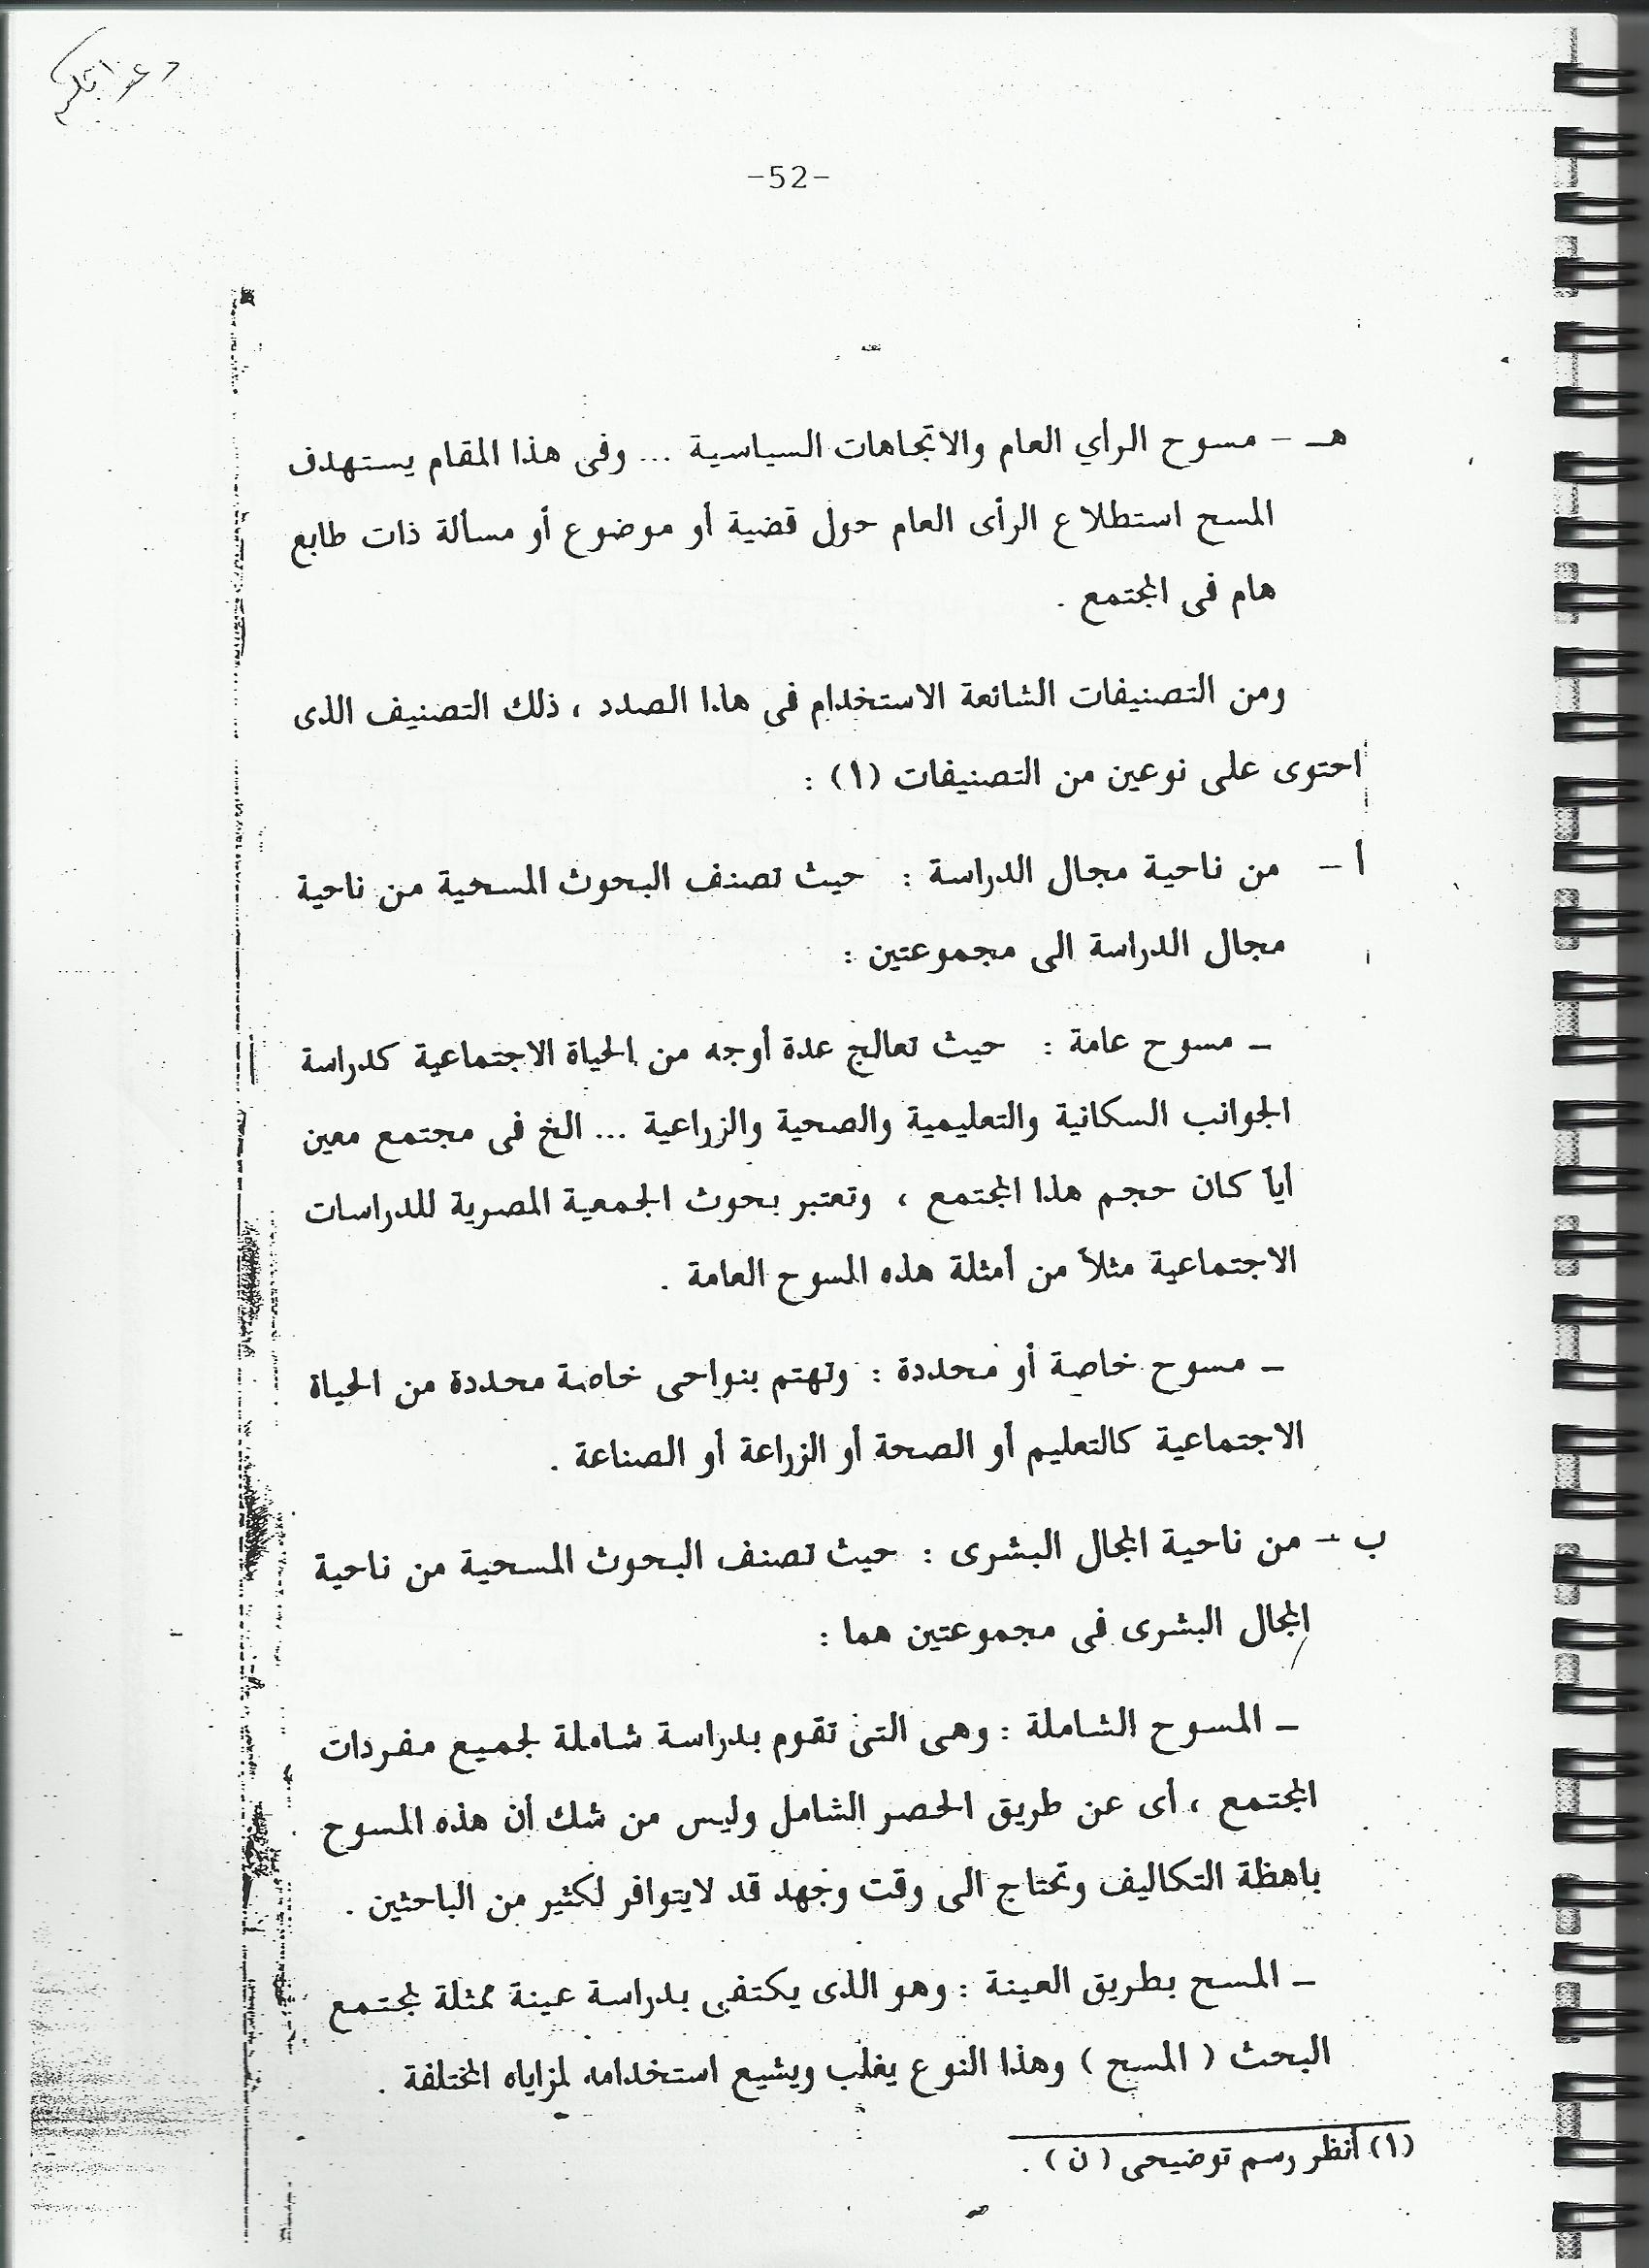 دعواتكم
-52-
هـ - مسوح الرأي العام والاتجاهات السياسية ... وفى هذا المقام يستهدف
المسح استطلاع الرأى العام حول قضية أو موضوع أو مسألة ذات طابع
هام فى المجتمع .
ومن التصنيفات الشائعة الاستخدام فى هذا الصدد ، ذلك التصنيف الذى
احتوى على نوعين من التصنيفات (١) :
أ - من ناحية مجال الدراسة : حيث تصنف البحوث المسحية من ناحية
مجال الدراسة الى مجموعتين :
ـ مسوح عامة : حيث تعالج عدة أوجه من الحياة الاجتماعية كدراسة
الجوانب السكانية والتعليمية والصحية والزراعية ... الخ فى مجتمع معين
أياً كان حجم هذا المجتمع ، وتعتبر بحوث الجمعية المصرية للدراسات
الاجتماعية مثلاً من أمثلة هذه المسوح العامة .
ـ مسوح خاصة أو محددة : وتهتم بنواحى خاصة محددة من الحياة
الاجتماعية كالتعليم أو الصحة أو الزراعة أو الصناعة .
ب - من ناحية المجال البشرى : حيث تصنف البحوث المسحية من ناحية
المجال البشرى فى مجموعتين هما :
ـ المسوح الشاملة : وهى التى تقوم بدراسة شاملة لجميع مفردات
المجتمع ، أى عن طريق الحصر الشامل وليس من شك أن هذه المسوح
باهظة التكاليف وتحتاج الى وقت وجهد قد لايتوافر لكثير من الباحثين .
ـ المسح بطريق العينة : وهو الذى يكتفى بدراسة عينة ممثلة لمجتمع
البحث ( المسح ) وهذا النوع يغلب ويشيع استخدامه لمزاياه المختلفة .
(١) أنظر رسم توضيحى ( ن ) .